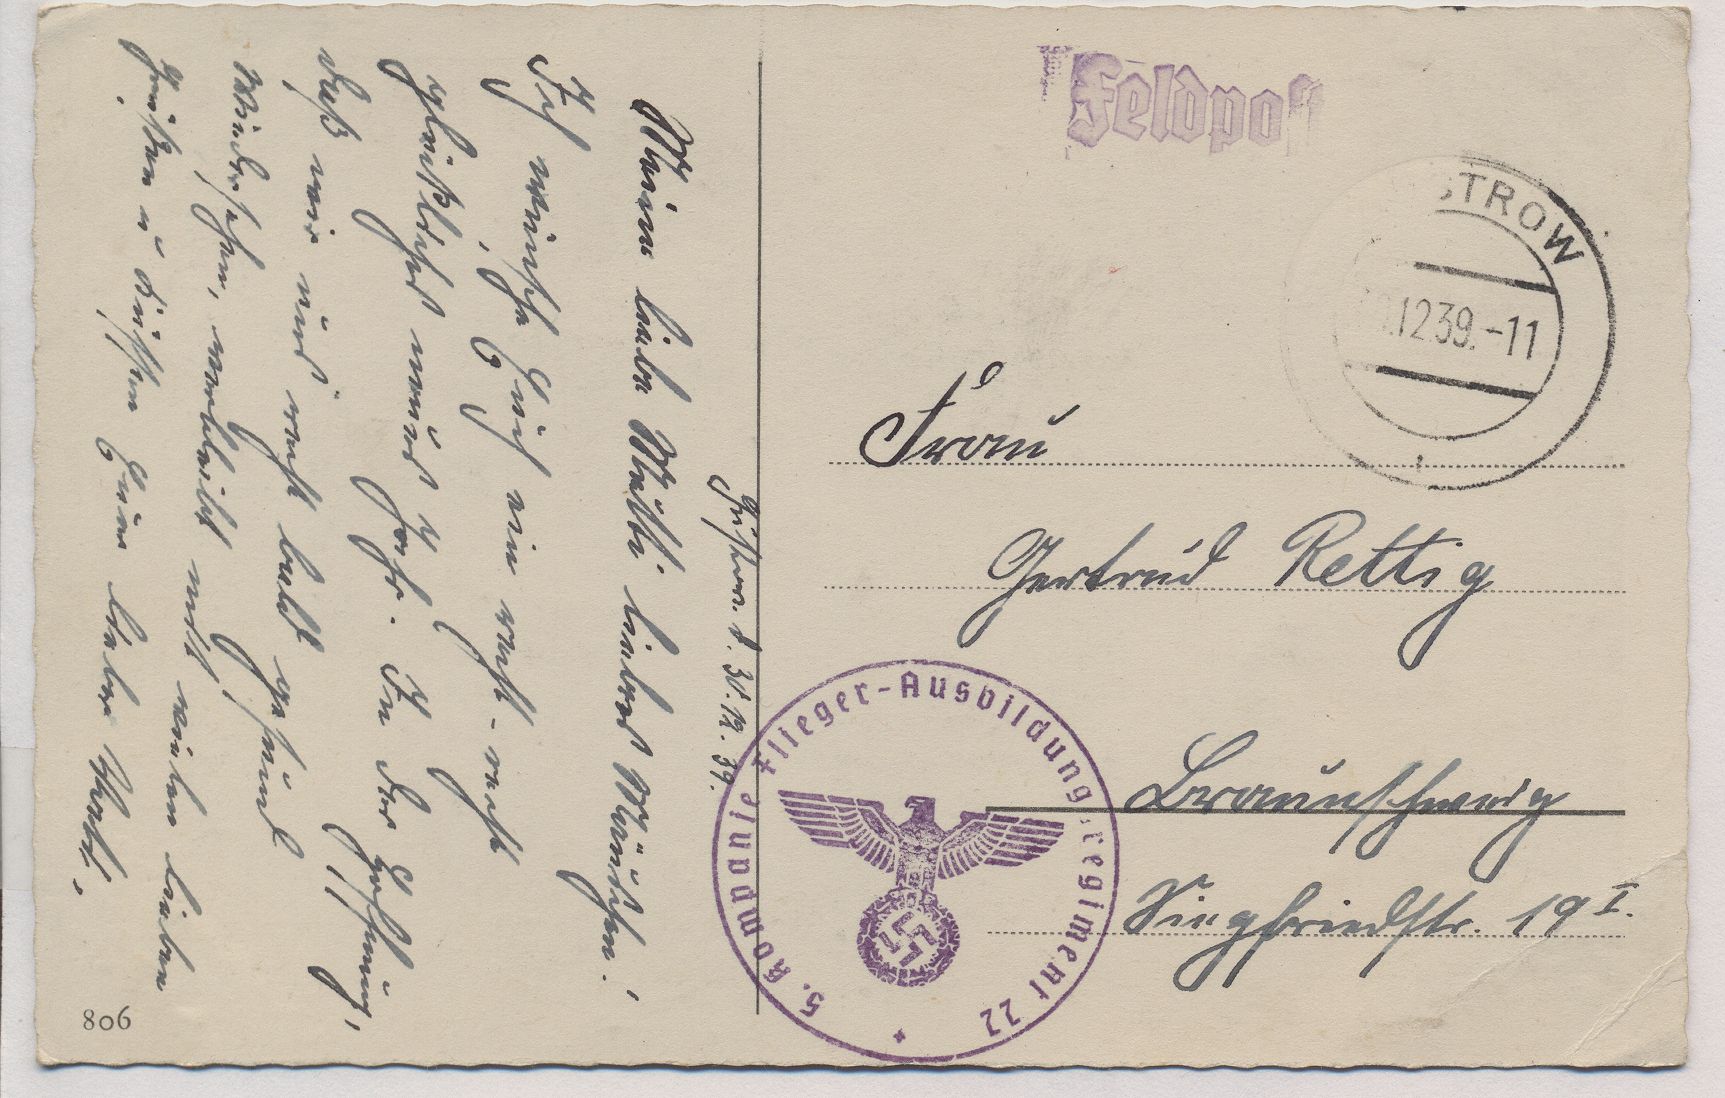 Güstrow. d. 30.12.39.
Meine liebe Mutti liebes Mäuschen!
Ich wünsche Euch ein recht - recht
glückliches neues Jahr. In der Hoffnung,
daß wir uns recht bald gesund
wiedersehen, verbleibt mit vielen lieben
Grüßen u Küssen Euer lieber Vati.
806
Feldpost
STROW
.12.39.-11
Frau
Gertrud Rettig
Braunschweig
Siegfriedstr. 19 I.
5. Kompanie Flieger-Ausbildungsregiment 22